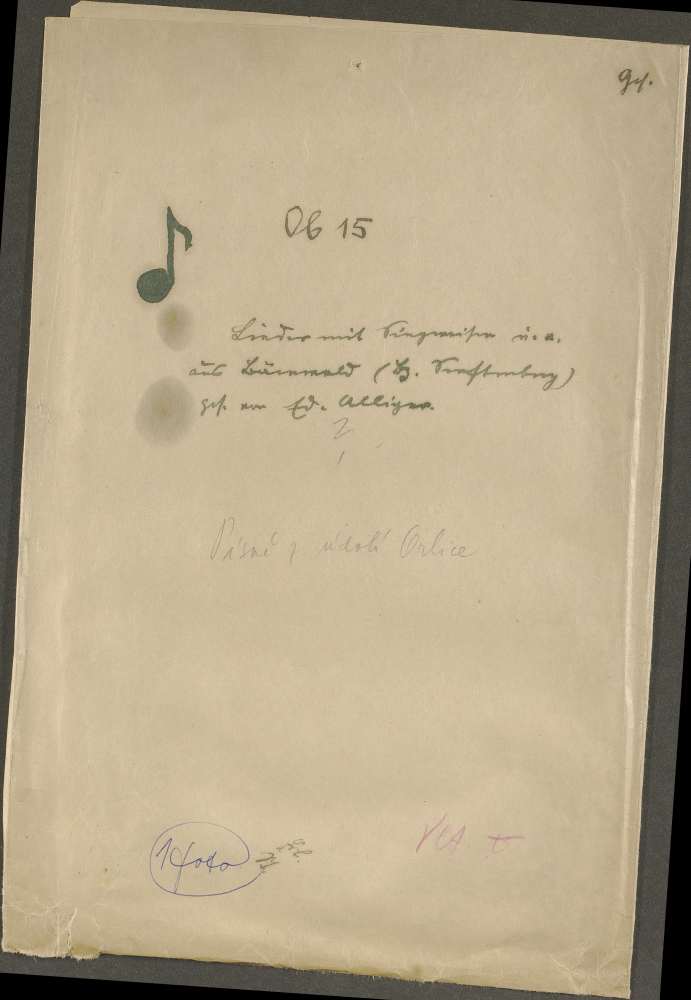 Ob 15
Lieder mit Singweisen u. a.
aus Bärnwald (Bz. Senftenberg)
ges. von Ed. Alliger.
Písně z údolí Orlice
1 foto